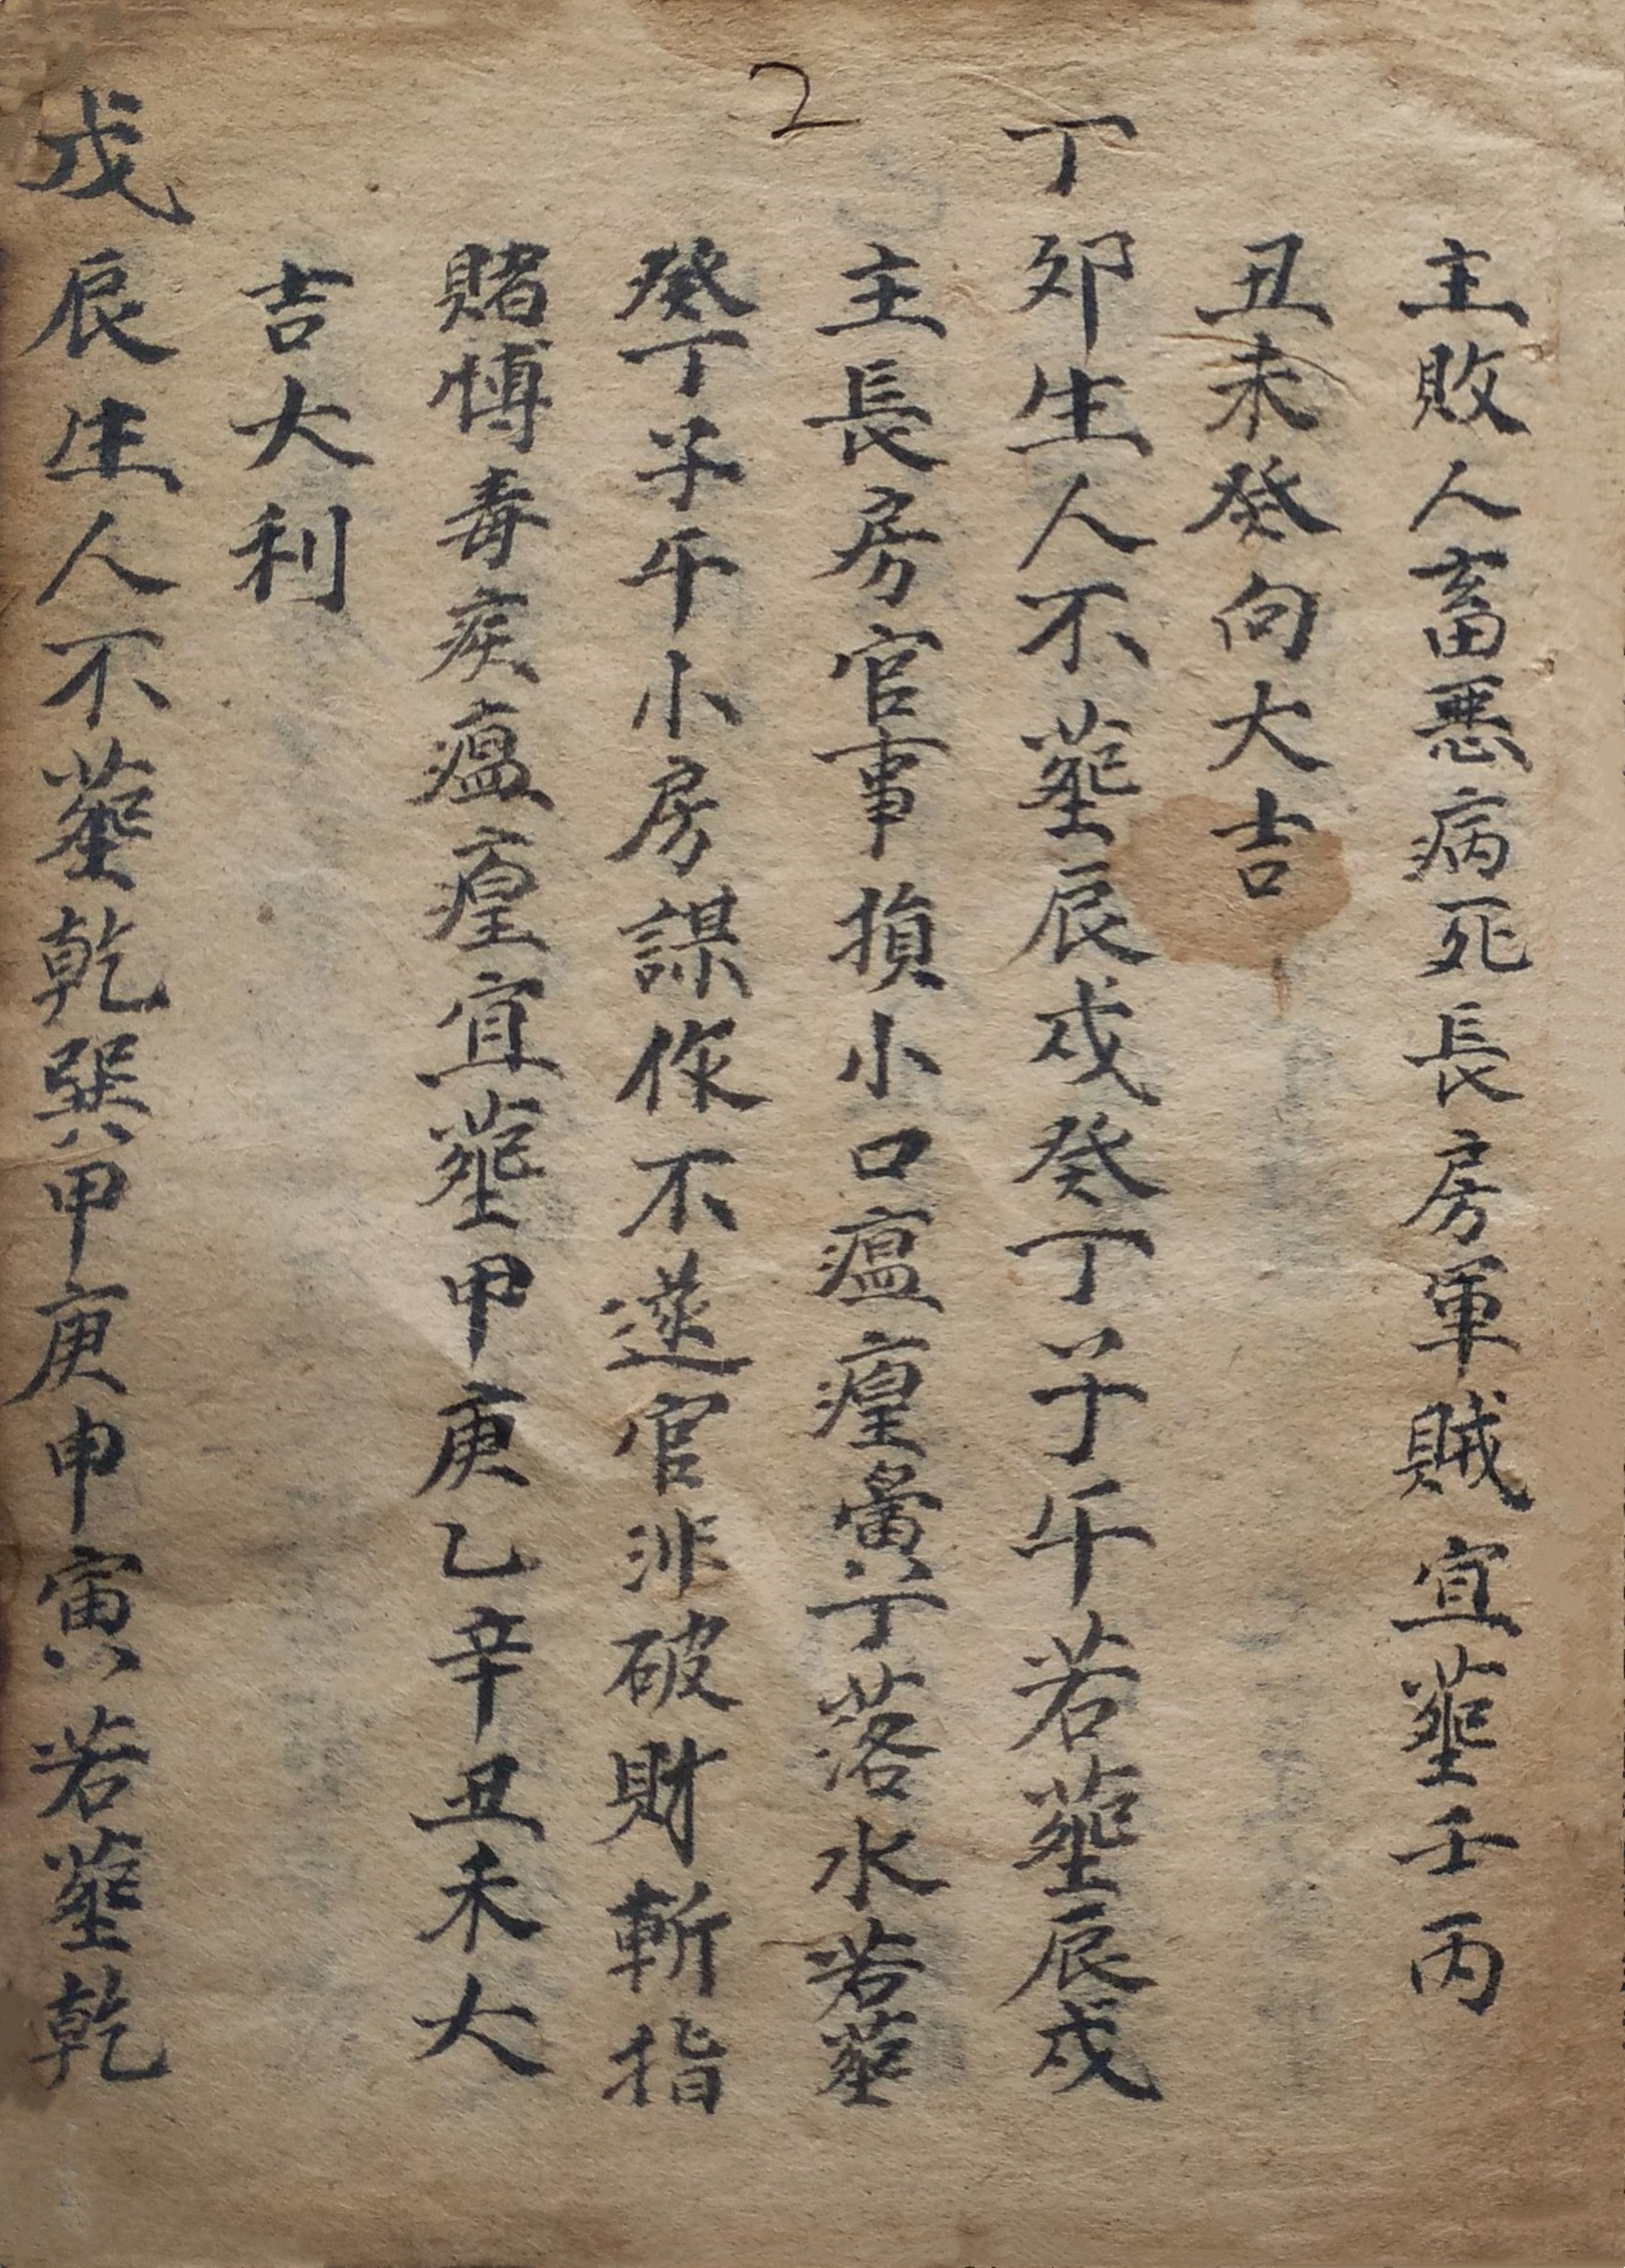 2
主敗人畜悪病死長房軍賊宜塟壬丙
丑未癸向大吉
丁卯生人不塟辰戌癸丁子午若塟辰戌
主長房官事損小口瘟㾮黄丁落水若塟
癸丁子午小房謀作不遂官非破財斬指
賭愽毒疾瘟㾮宜塟甲庚乙辛丑未大
吉大利
戊辰生人不塟乾巽甲庚申寅若塟乾